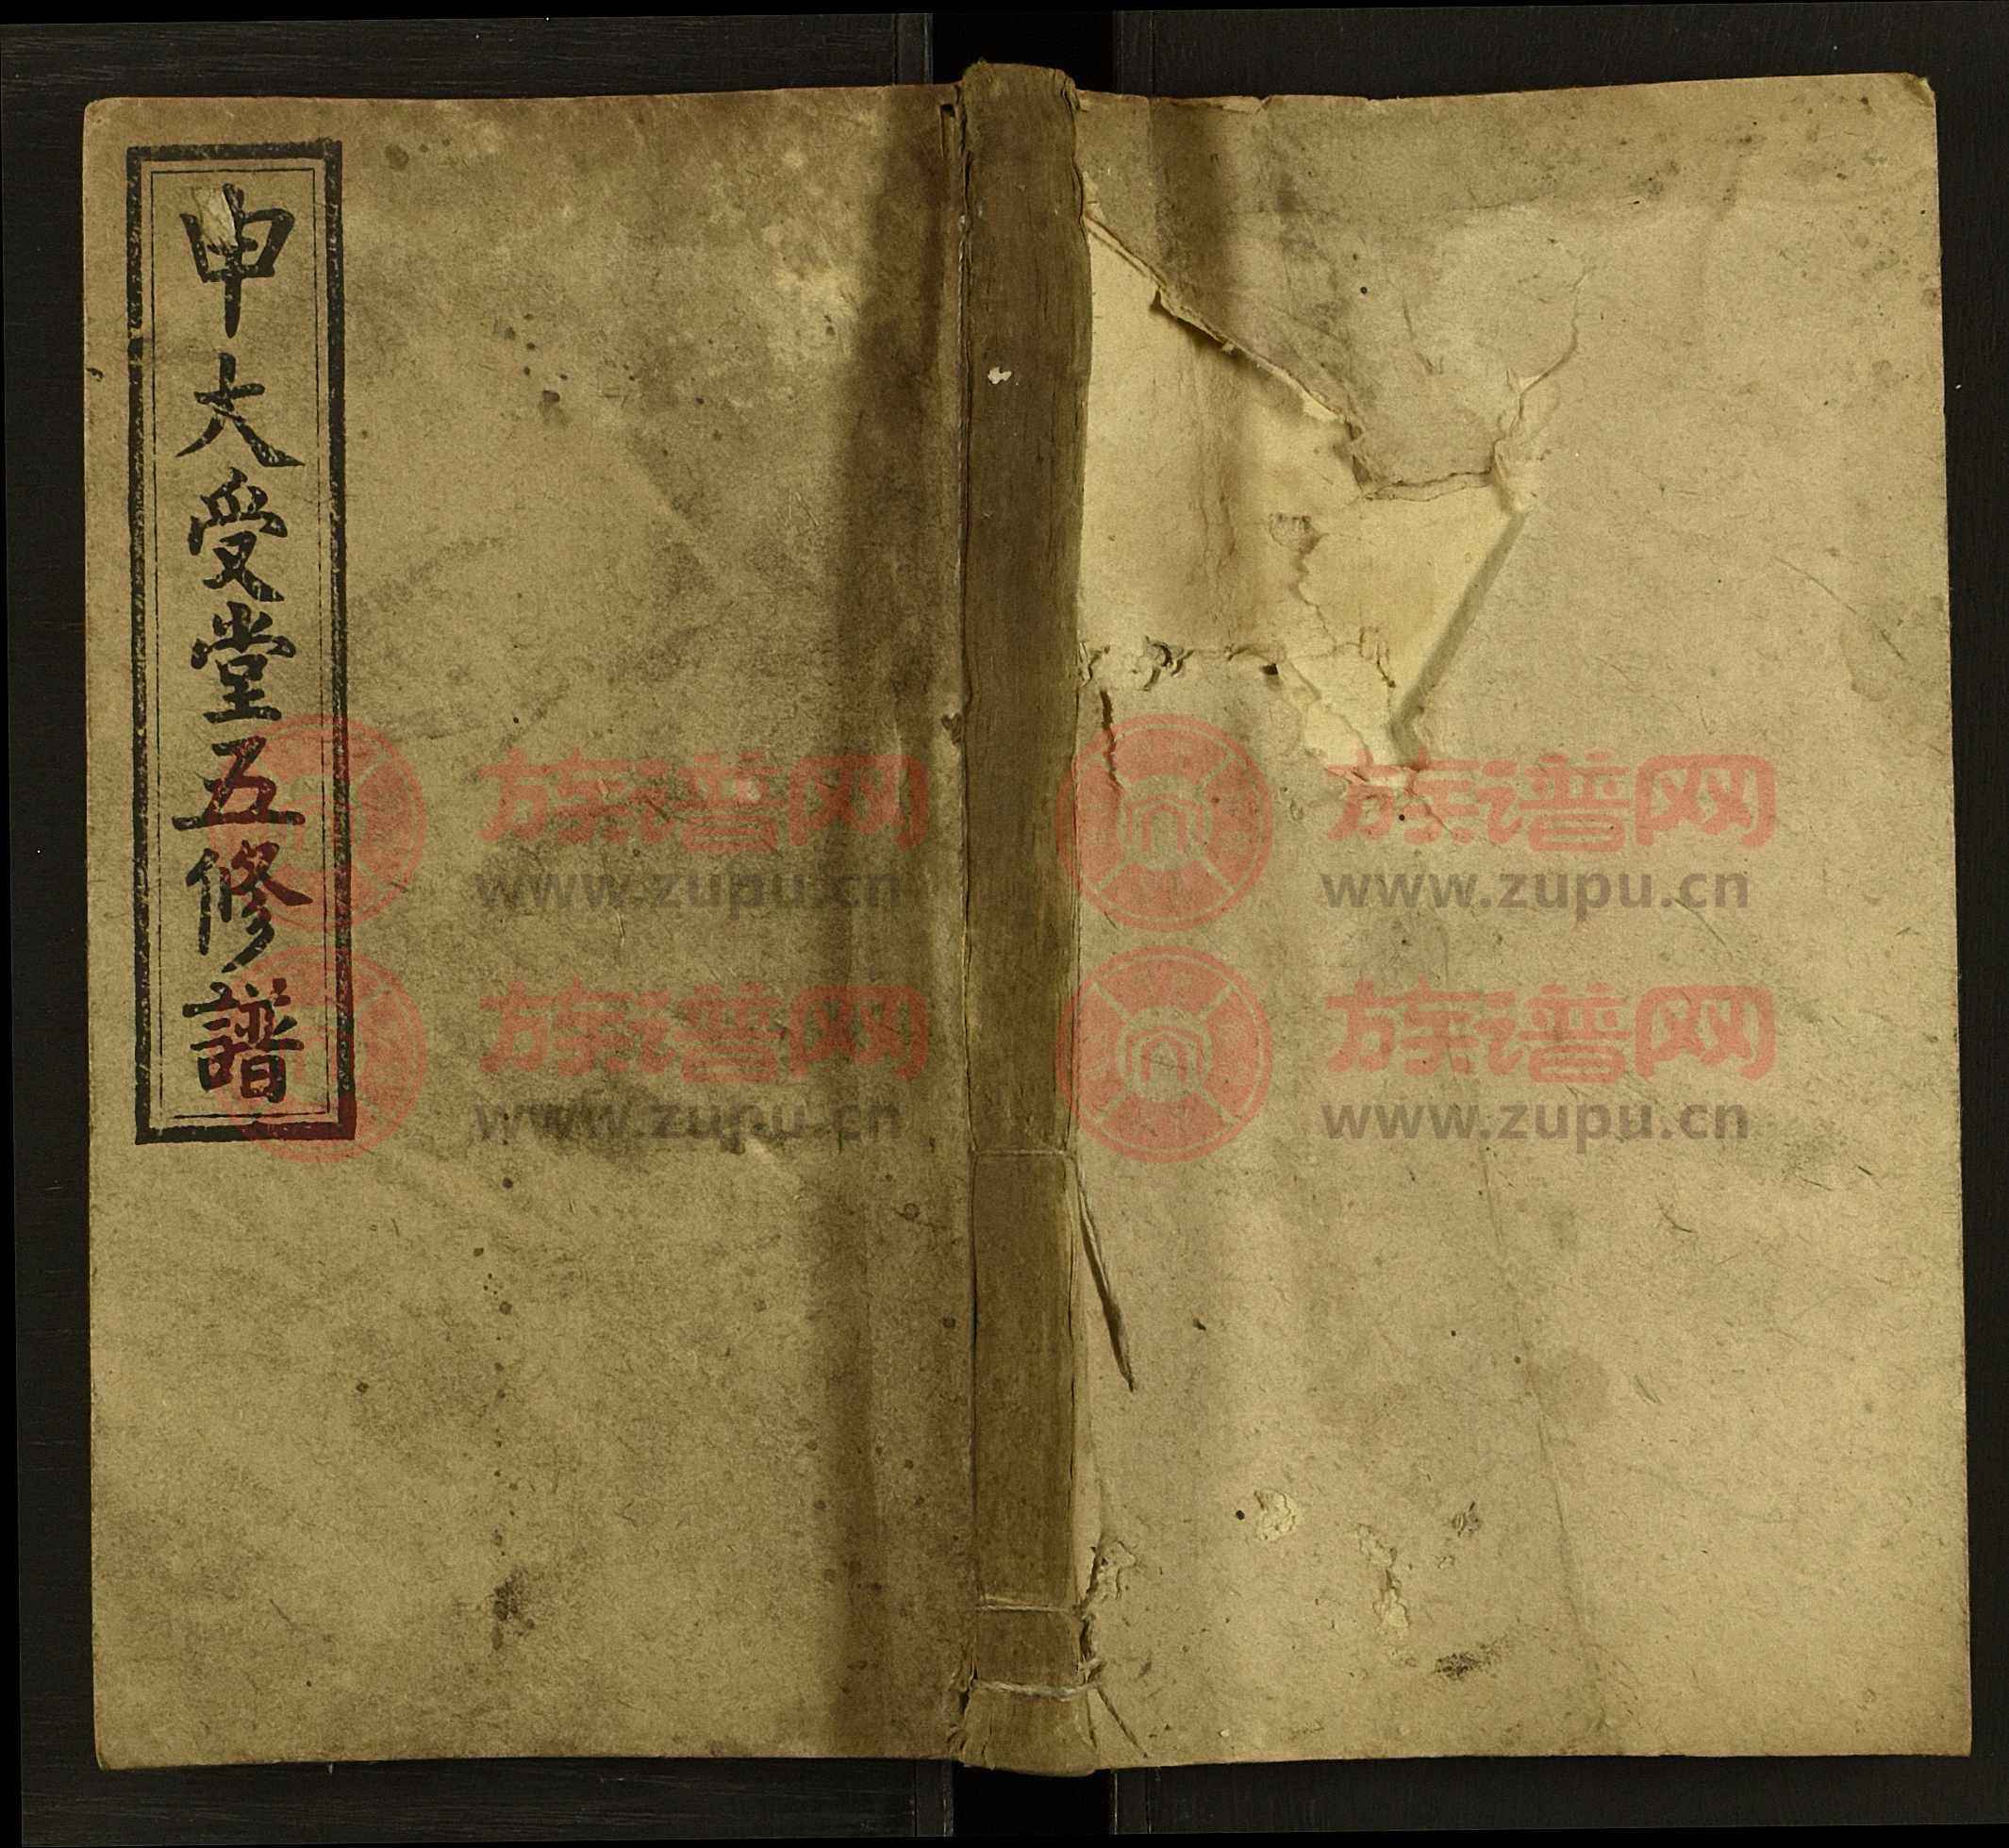 申大受堂五修譜
族谱网
www.zupu.cn
族谱网
www.zupu.cn
族谱网
www.zupu.cn
族谱网
www.zupu.cn